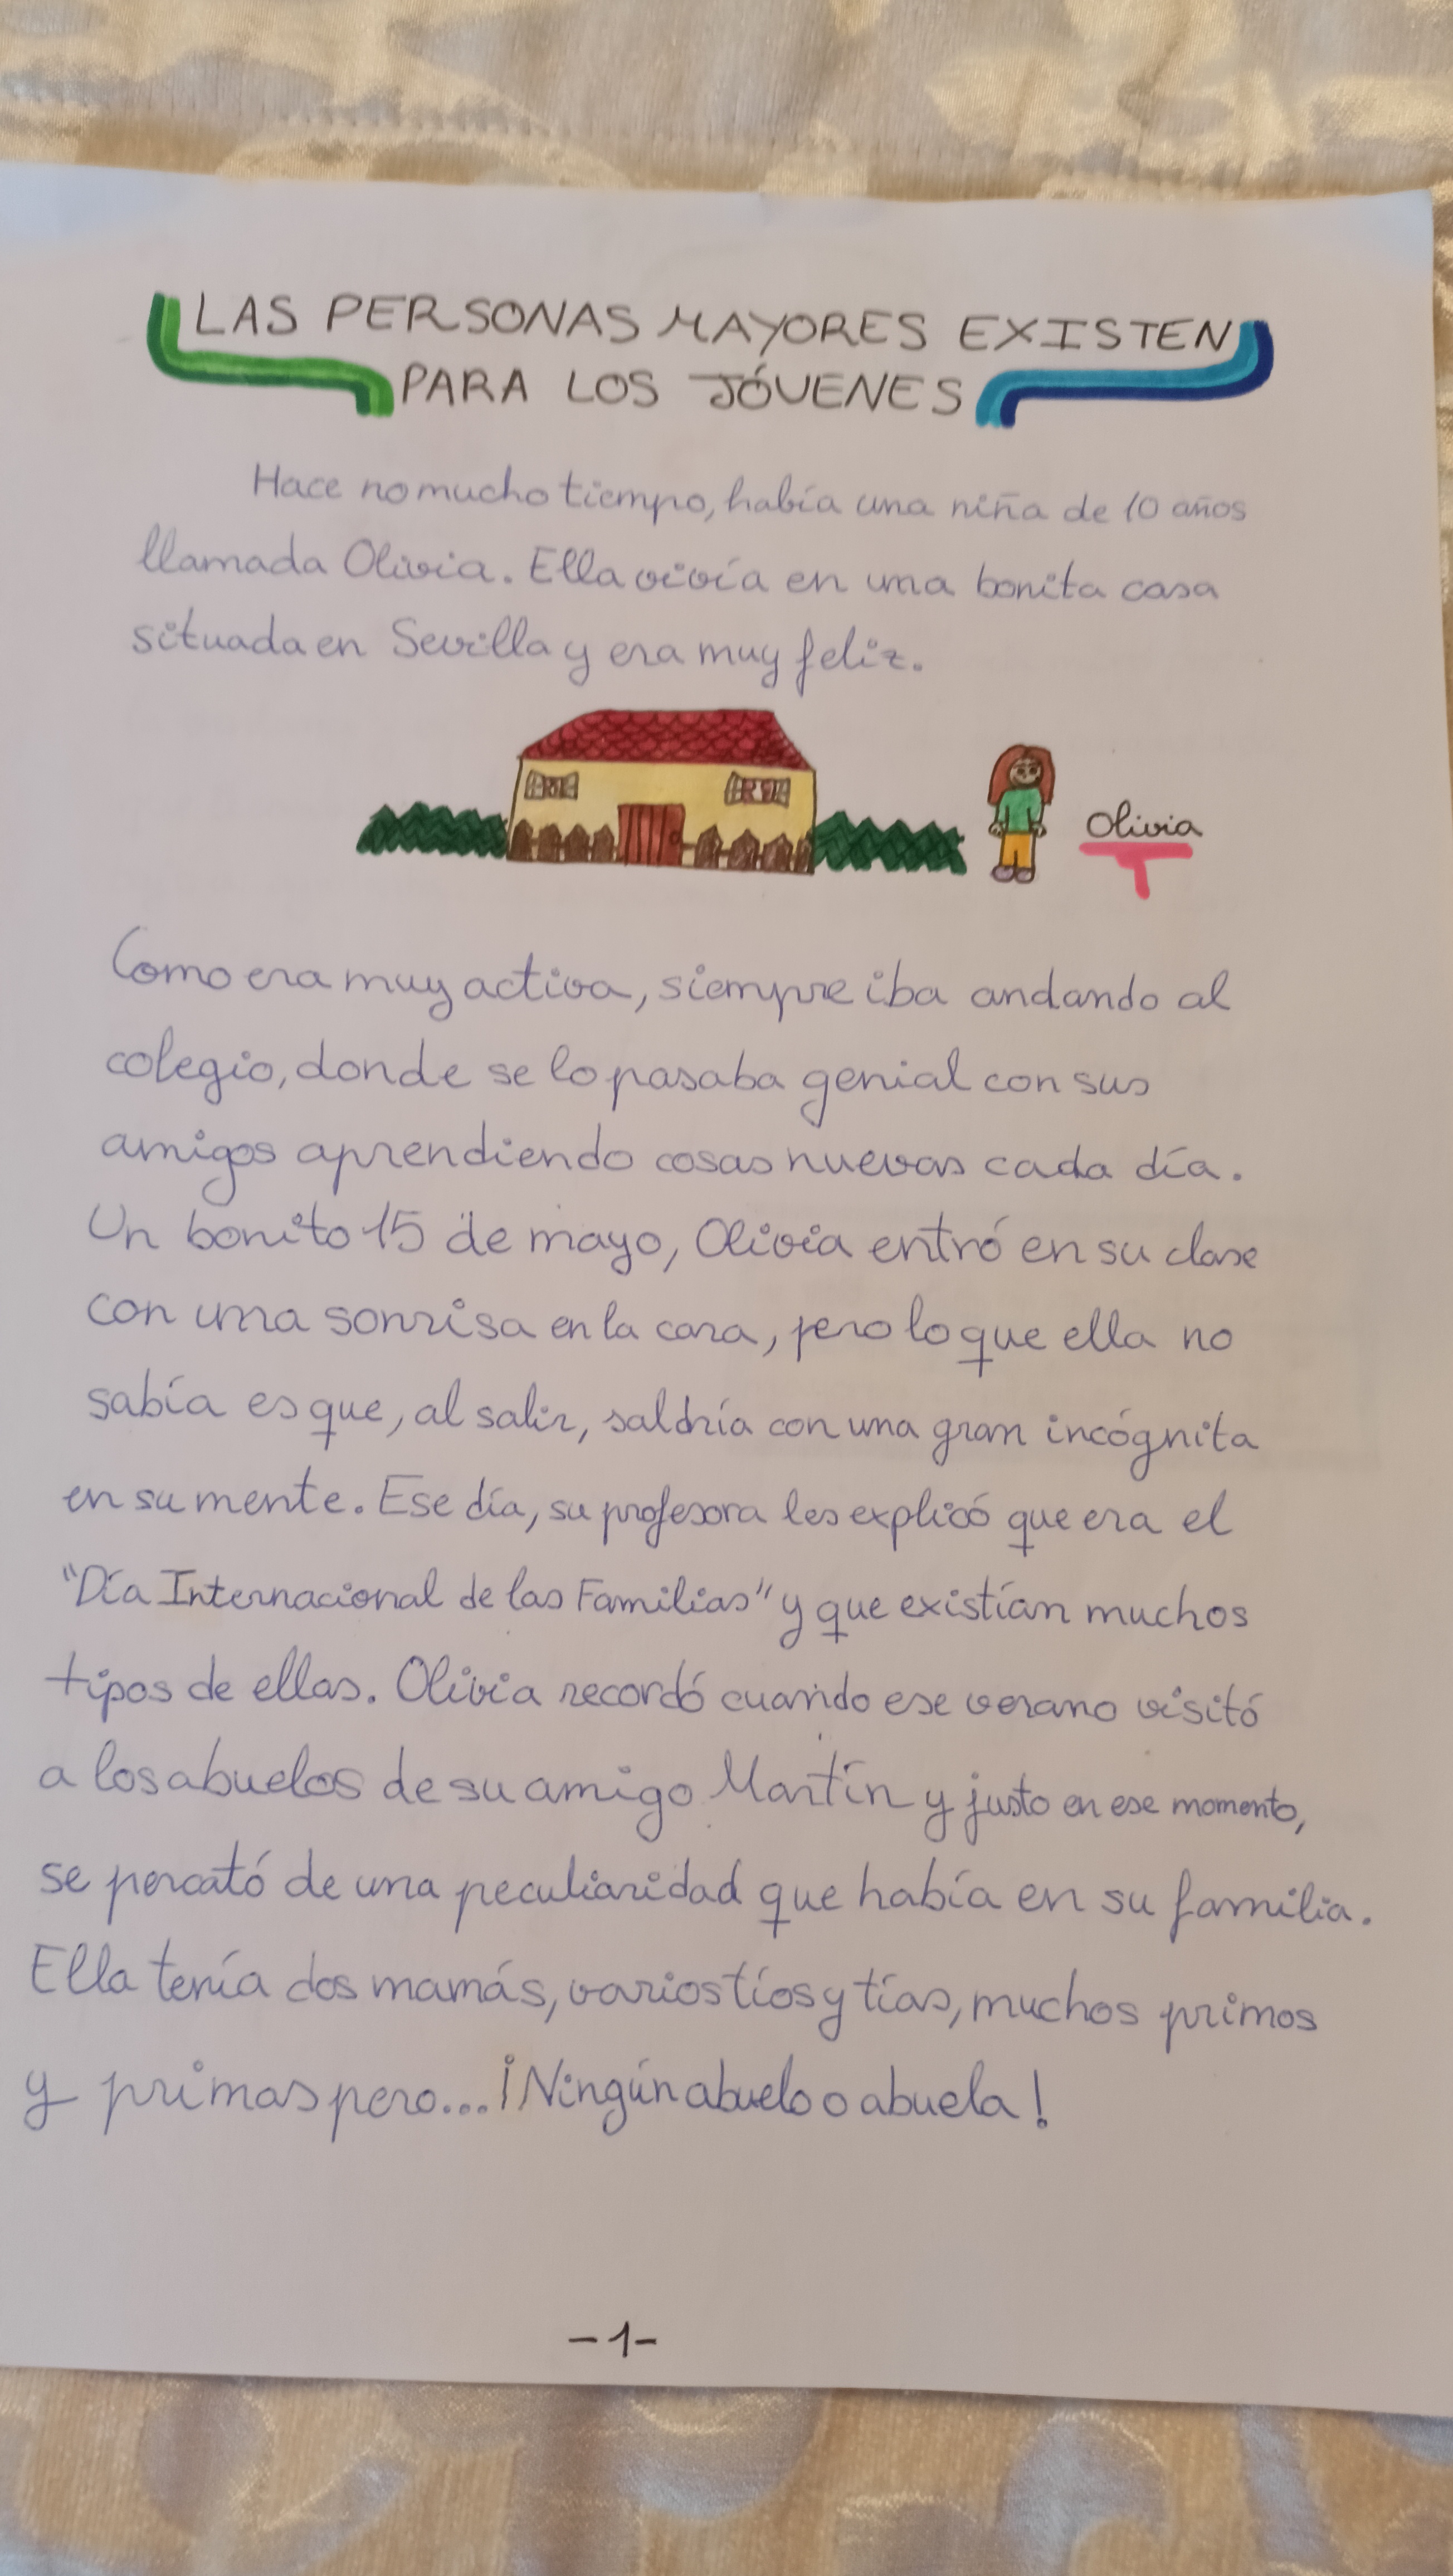 LAS PERSONAS MAYORES EXISTEN
PARA LOS JÓVENES
Hace no mucho tiempo, había una niña de 10 años
llamada Olivia. Ella vivía en una bonita casa
situada en Sevilla y era muy feliz.
Olivia
Como era muy activa, siempre iba andando al
colegio, donde se lo pasaba genial con sus
amigos aprendiendo cosas nuevas cada día.
Un bonito 15 de mayo, Olivia entró en su clase
con una sonrisa en la cara, pero lo que ella no
sabía es que, al salir, saldría con una gran incógnita
en su mente. Ese día, su profesora les explicó que era el
"Día Internacional de las Familias" y que existían muchos
tipos de ellas. Olivia recordó cuando ese verano visitó
a los abuelos de su amigo Martín y justo en ese momento,
se percató de una peculiaridad que había en su familia.
Ella tenía dos mamás, varios tíos y tías, muchos primos
y primas pero... ¡Ningún abuelo o abuela!
-1-